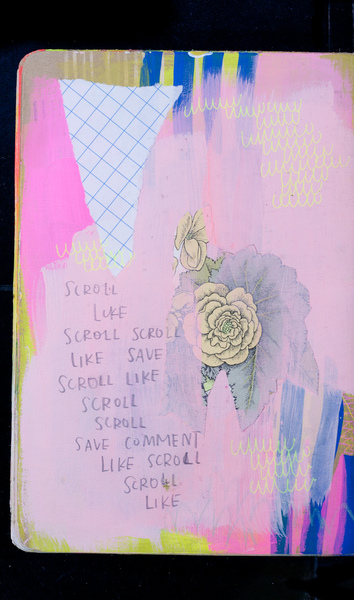 SCROLL
LIKE
SCROLL SCROLL
LIKE SAVE
SCROLL LIKE
SCROLL
SCROLL
SAVE COMMENT
LIKE SCROLL
SCROLL
LIKE